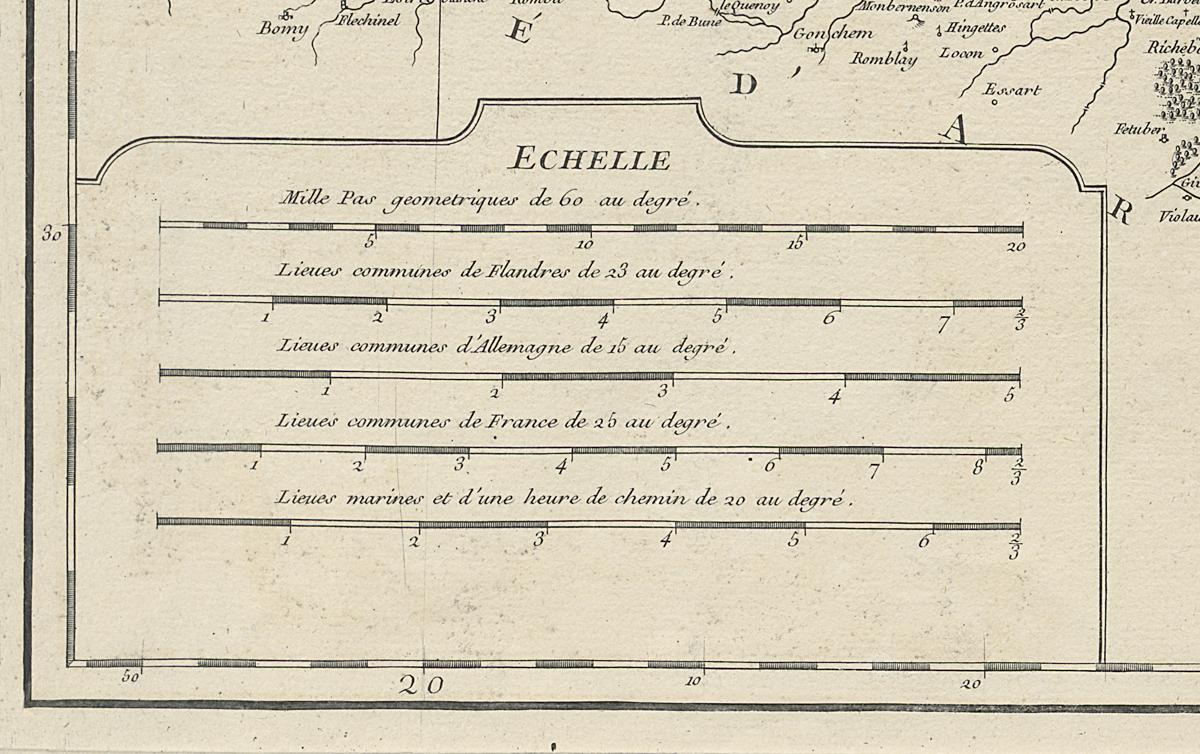 Bomy
Flechinel
É
P. de Bune
le Quenoy
Gonschem
Monbernenson
P. d'Angrosart
Hingettes
Romblay
Locon
Vieille Capelle
D'
Essart
A
Fetuber
R
ECHELLE
Mille Pas geometriques de 60 au degré.
5 10 15 20
30
Lieues communes de Flandres de 23 au degré.
1 2 3 4 5 6 7 2/3
Lieues communes d'Allemagne de 15 au degré.
1 2 3 4 5
Lieues communes de France de 25 au degré.
1 2 3 4 5 6 7 8 2/3
Lieues marines et d'une heure de chemin de 20 au degré.
1 2 3 4 5 6 2/3
50 20 10 20